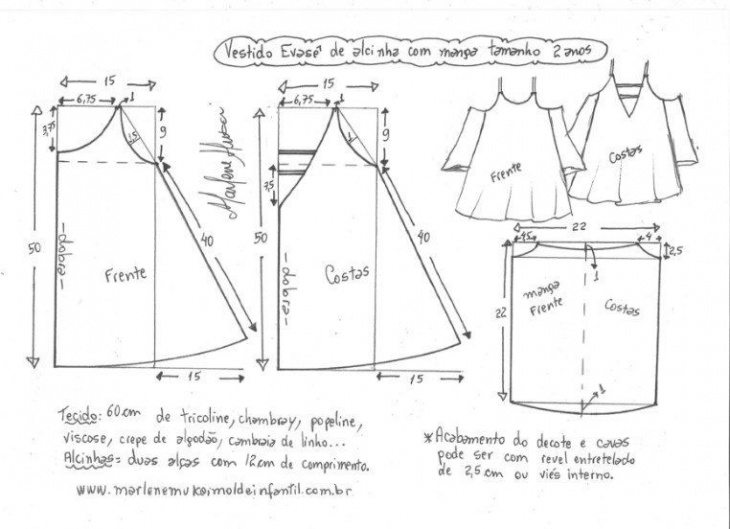 Vestido Evasê de alcinha com manga tamanho 2 anos
15
6,75
1
3,75
1,5
9
50
40
dobra
Frente
15
Marlene Mukai
15
6,75
1
1
9
7,5
50
40
dobra
Costas
15
Frente
Costas
22
4,5
4
2,5
1
22
manga
Frente
Costas
1
Tecido: 60cm de tricoline, chambray, popeline,
viscose, crepe de algodão, cambraia de linho...
Alcinhas= duas alças com 12cm de comprimento.
www.marlenemukaimoldeinfantil.com.br
*Acabamento do decote e cavas
pode ser com revel entretelado
de 2,5 cm ou viés interno.